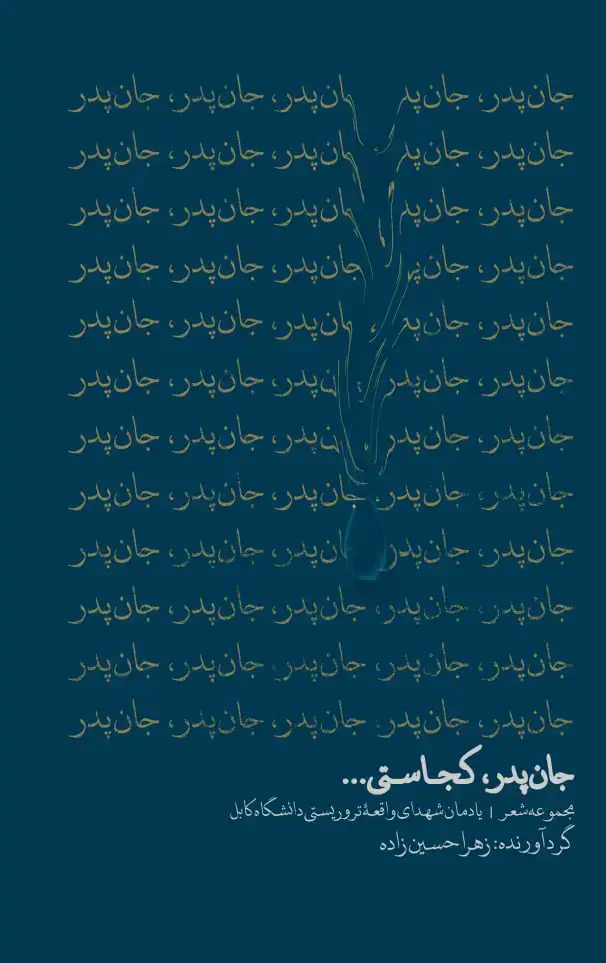 جان‌پدر، جان‌پدر، جان‌پدر، جان‌پدر، جان‌پدر
جان‌پدر، جان‌پدر، جان‌پدر، جان‌پدر، جان‌پدر
جان‌پدر، جان‌پدر، جان‌پدر، جان‌پدر، جان‌پدر
جان‌پدر، جان‌پدر، جان‌پدر، جان‌پدر، جان‌پدر
جان‌پدر، جان‌پدر، جان‌پدر، جان‌پدر، جان‌پدر
جان‌پدر، جان‌پدر، جان‌پدر، جان‌پدر، جان‌پدر
جان‌پدر، جان‌پدر، جان‌پدر، جان‌پدر، جان‌پدر
جان‌پدر، جان‌پدر، جان‌پدر، جان‌پدر، جان‌پدر
جان‌پدر، جان‌پدر، جان‌پدر، جان‌پدر، جان‌پدر
جان‌پدر، جان‌پدر، جان‌پدر، جان‌پدر، جان‌پدر
جان‌پدر، جان‌پدر، جان‌پدر، جان‌پدر، جان‌پدر
جان‌پدر، جان‌پدر، جان‌پدر، جان‌پدر، جان‌پدر
جان‌پدر، کجاستی...
مجموعه‌شعر | یادمان شهدای واقعهٔ تروریستی دانشگاه کابل
گردآورنده: زهرا حسین‌زاده